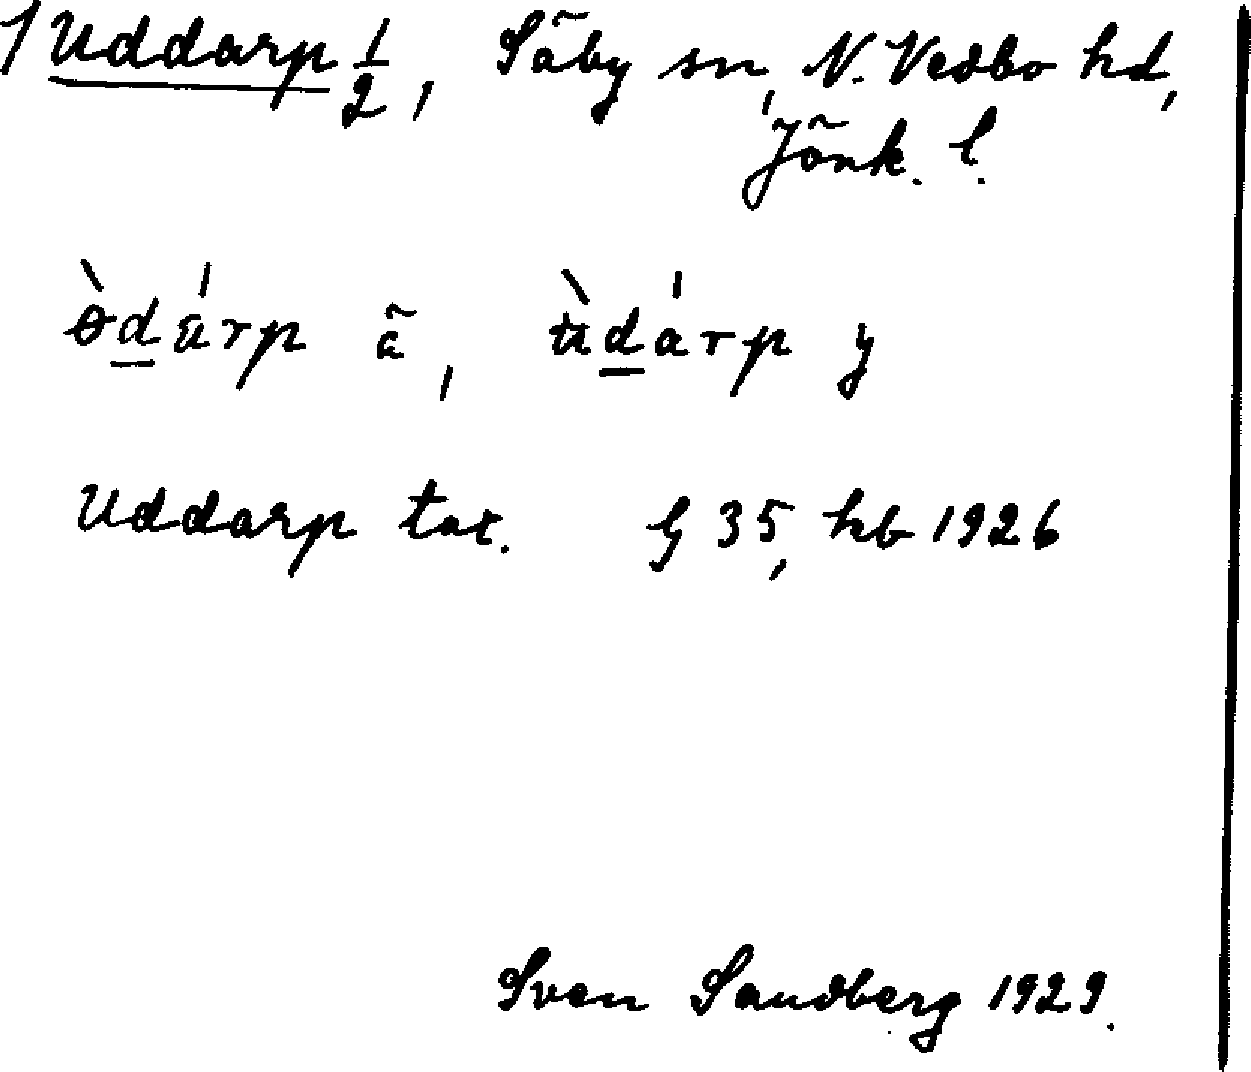 Uddarp 1/2, Säby sn, N. Vedbo hd,
Jönk. l.
ɵ̀dárp ä, ʉ̀dárp y
Uddarp tax. Bj 35, hb 1926
Sven Sandberg 1929.